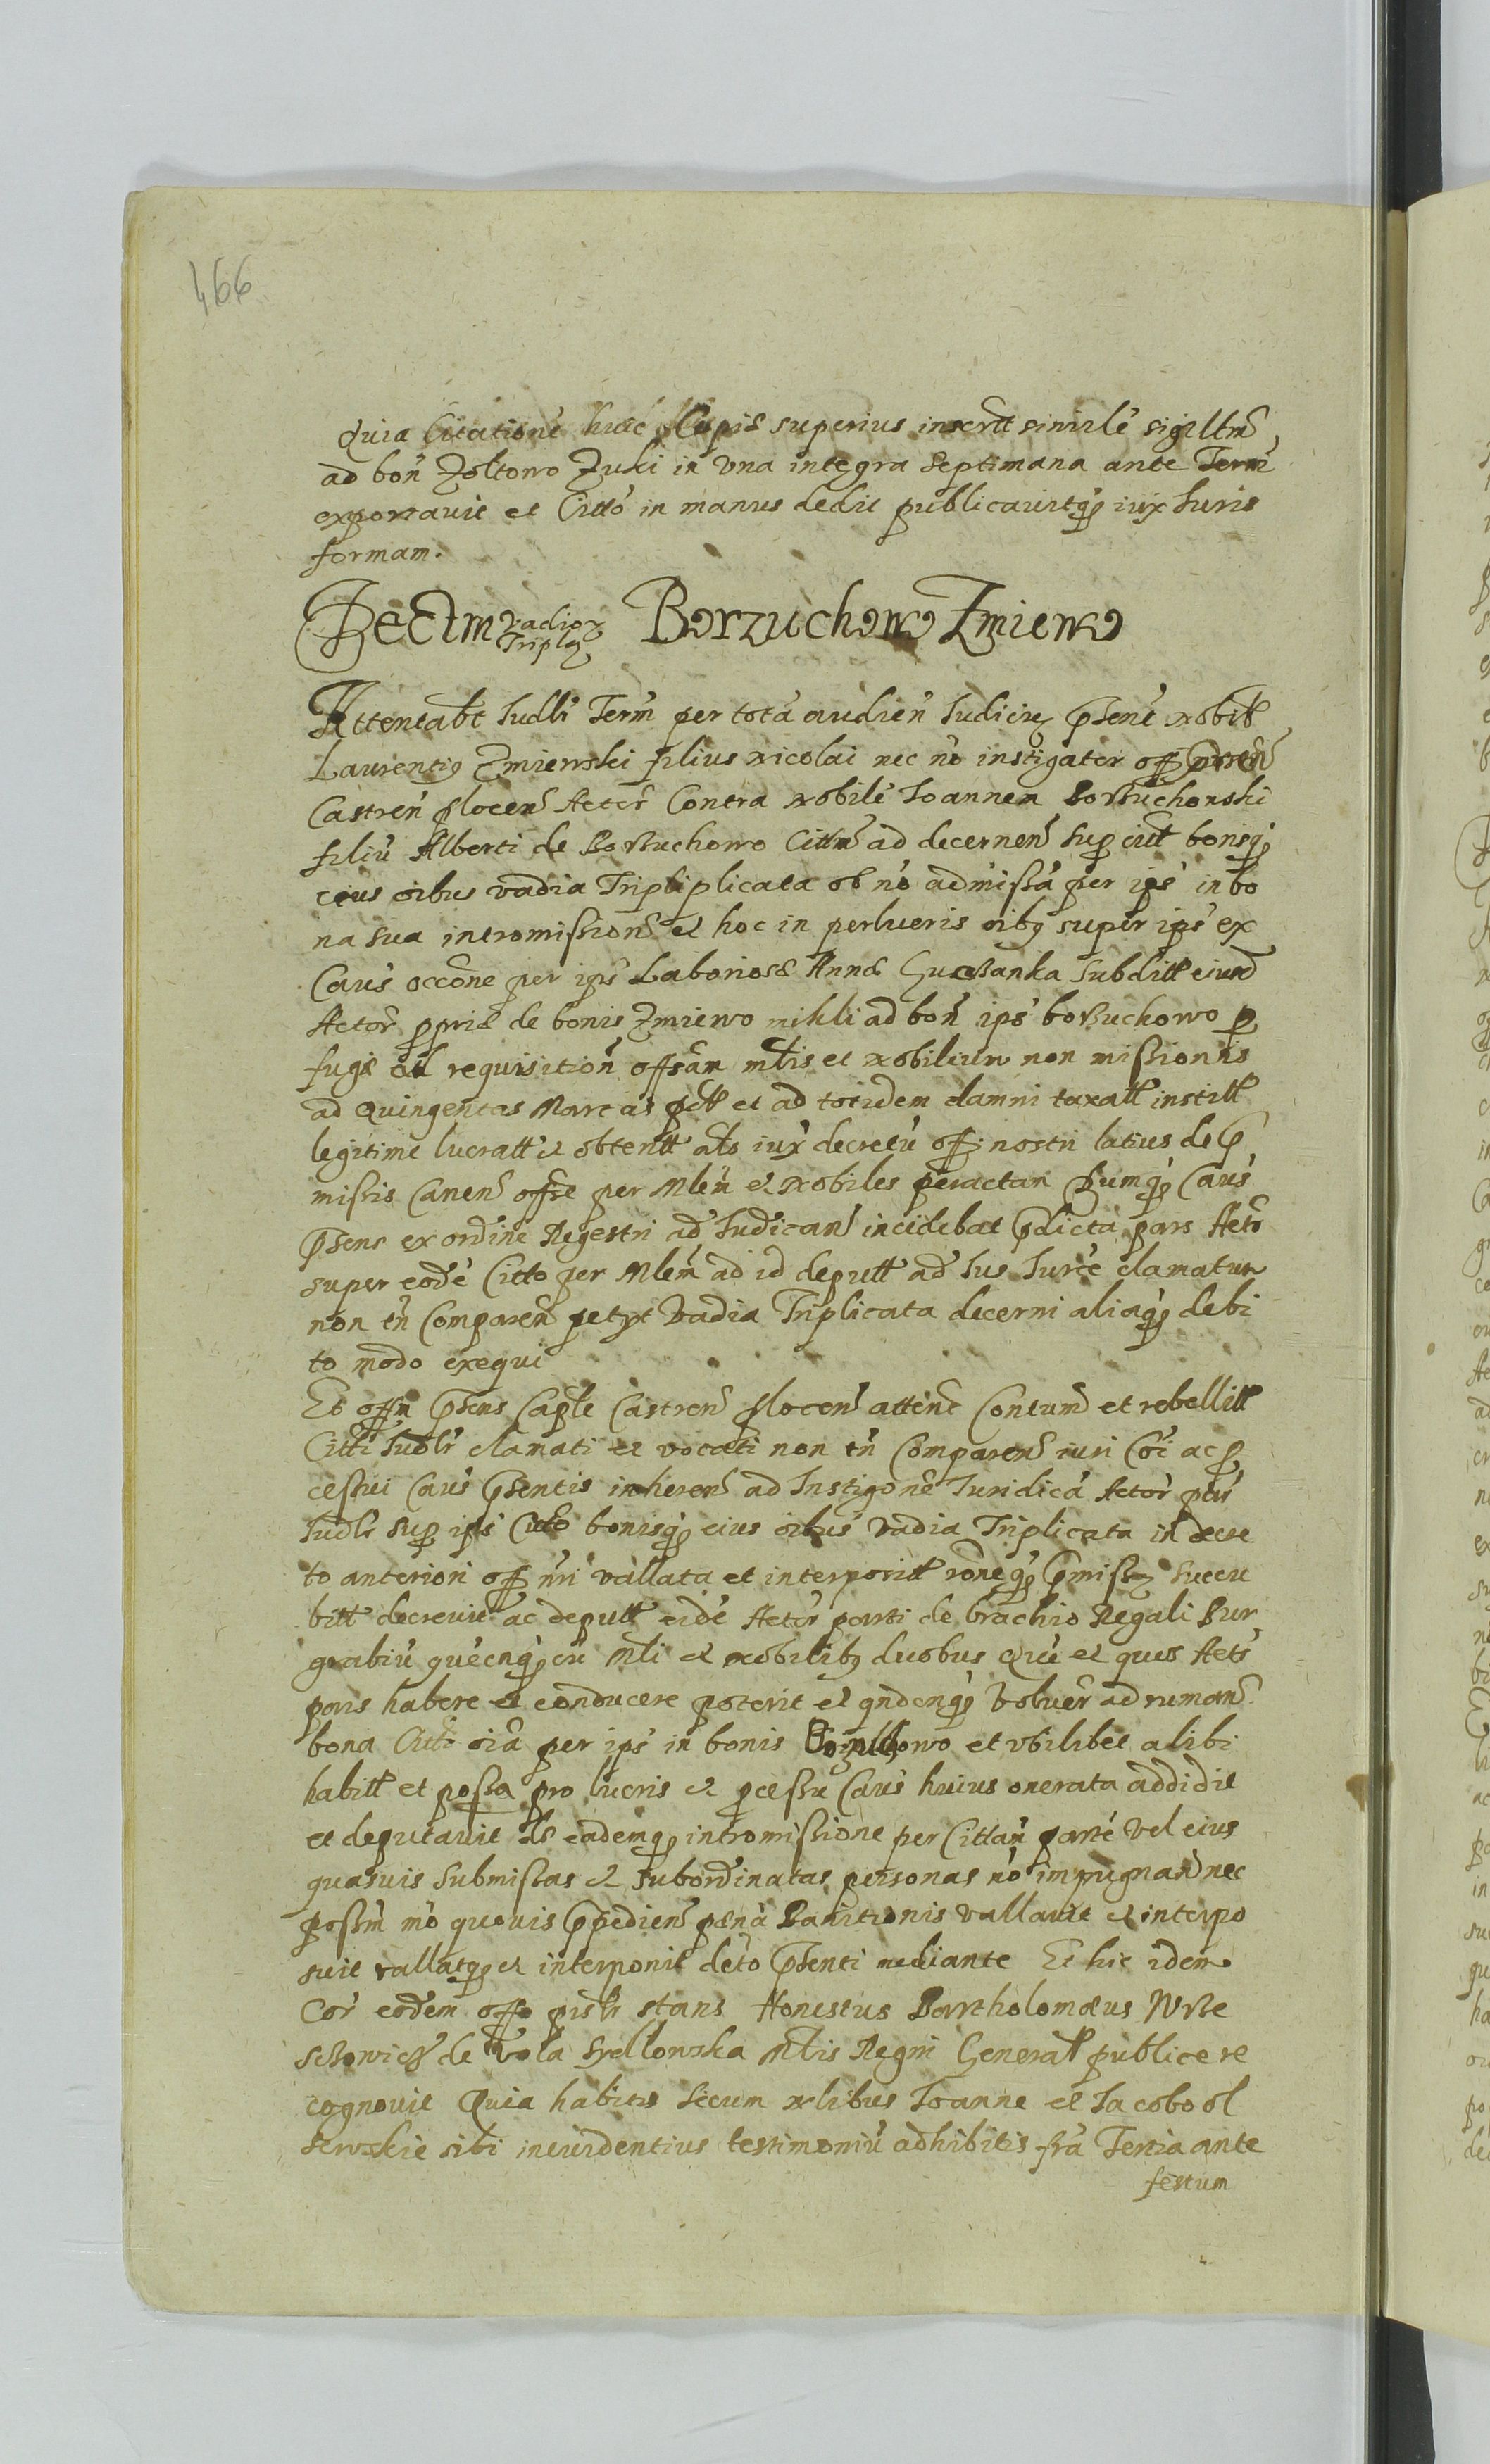 466
Quia Citatione huic copie superius insertt simile sigilltm
ad bon Zołtowo Żuki in una integra septimana ante Term
exportavit et Citto in manus dedit publicavitq iux Iuris
formam.
Dectm vadior Tripla Borzuchowo Żmiewo
Attentabt Iudlr Term per tota audien Iudiciu psens nobil
Laurentiq Żmiewski filius Nicolai nec no instigator off psen
Castren plocen Actor Contra nobile Ioannem Borzuchowski
filiu Alberti de Borzuchowo Cittm ad decernen sup citt bonisq
eius oibus vadia Tripliplicata ob no admissa per ips in bo
na sua intromission et hoc in perlucris oibq super ips ex
Caus occone per ips Laboriose Anne subditt eiusd
Actor pprie de bonis Żmiewo ad bon ips borzuchowo p
fuge ad requisition offsam mtis et nobilium non missionis
ad Quingentas Marcas pctt et ad totidem damni taxatt instill
legitime lucratt et obtentt als iux decretu off nostri latius de p
missis Canen offse per Mlem et Nobiles peractam Cumq Caus
psens ex ordine Regestri ad Iudican incidebat pdicta pars Acto
super eode Citto per Mlem ad id deputt ad Ius Iurce clamatum
non tn Comparen petyt Vadia Triplicata decerni aliaq debi
to modo exequi
Et offm psens Caple Castren plocen attent Contum et rebellitt
Citti Iudlr clamati et vocati non tn Comparen iuri Coi ac p
cessui Caus psentis inheren ad Instigone Iuridica Actor part
Iudlr sup ips Citto bonisq eius oibus Vadia Triplicata in decre
to anteriori off nri vallata et interposit roneq pmissor succu
bitt decrevit ac deputt eide Actor parti de brachio Regali Bur
grabiu quecnq cu Mli et nobilibq duobus Que et quos Acts
pars habere et conducere poterit et qndcnq Voluer ad ruman
bona Citti oia per ips in bonis et ubilibet alibi
habitt et possa pro lucris et pcessu Caus huius onerata addidit
et deputavit Ab eademq intromissione per Cittam parte vel eius
quasvis submissas et subordinatas personas no impugnan nec
possm mo quovis ppedien pæna Banitionis vallavit et interpo
suit vallatq et interponit deto psenti mediante Et hic idem
Cor eodem offo pislr stans Honestus Bartholomæus Wrze
de Vola Syellowska Mtis Regni Generatt publice re
cognovit Quia habitis secum nlibus Ioanne et Iacobo ol
sewskie sibi inevidentius testimoniu adhibitis fra Tertia ante
festum